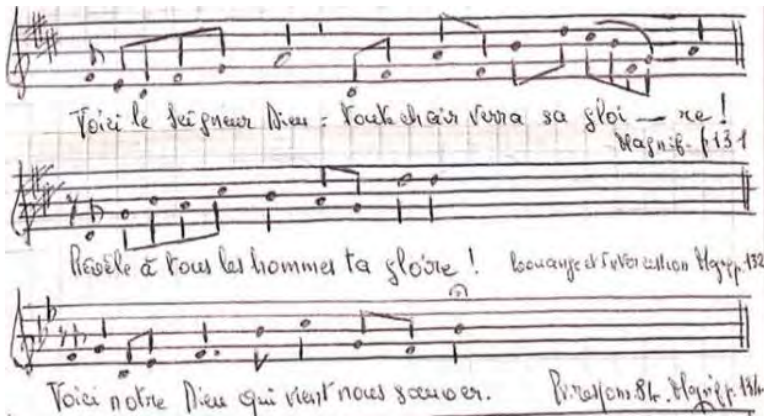 Voici le Seigneur Dieu : toute chair verra sa gloi — re !
Magnif. p 131
Révèle à tous les hommes ta gloire ! Louange et Intercession Magnif p. 132
Voici notre Dieu qui vient nous sauver. Magnif p. 134